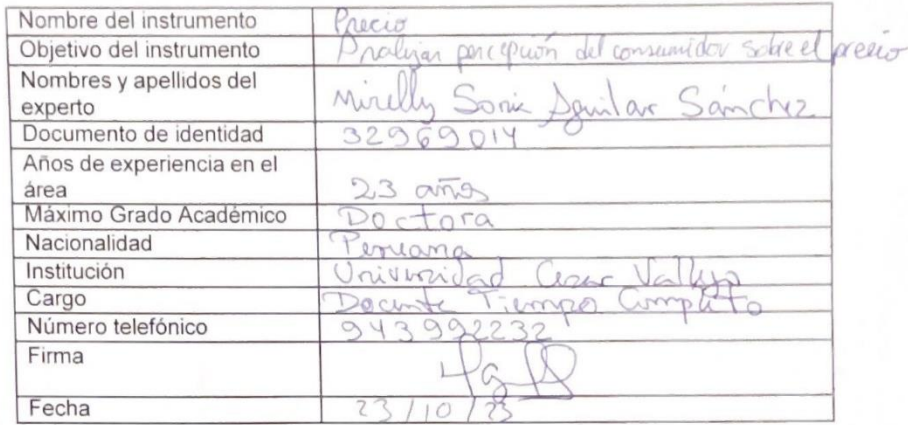 Nombre del instrumento Precio
Objetivo del instrumento Analizar percepción del consumidor sobre el precio
Nombres y apellidos del
experto Mirelly Sonia Aguilar Sánchez
Documento de identidad 32969014
Años de experiencia en el
área 23 años
Máximo Grado Académico Doctora
Nacionalidad Peruana
Institución Universidad Cesar Vallejo
Cargo Docente Tiempo Completo
Número telefónico 943992232
Firma
Fecha 23/10/23